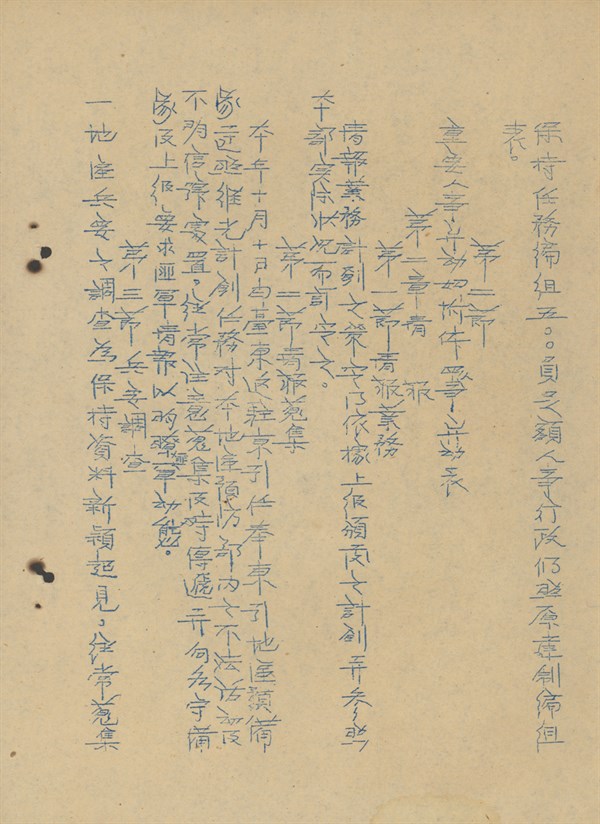 保持任務編組五〇〇員足額人事行政仍照原建制編組
表。
第三節
重要人事異動如附件事異動表
第二章 情報
第一節 情報業務
情報業務計劃之策定乃依據上級頒之計劃并參照
本部實際狀況而訂定之。
第二節 情報蒐集
本年十月十日由臺東返駐東引任奉東引地區預備
隊照維光計劃任務對本地區預防部內之不法活動及
不明信號處置。經常注意蒐集及時傳遞并向各守備
隊及上級要求匪軍情報以明瞭匪軍動態。
第三節 兵要調查
一地區兵要之調查為保持資料新穎起見，經常蒐集